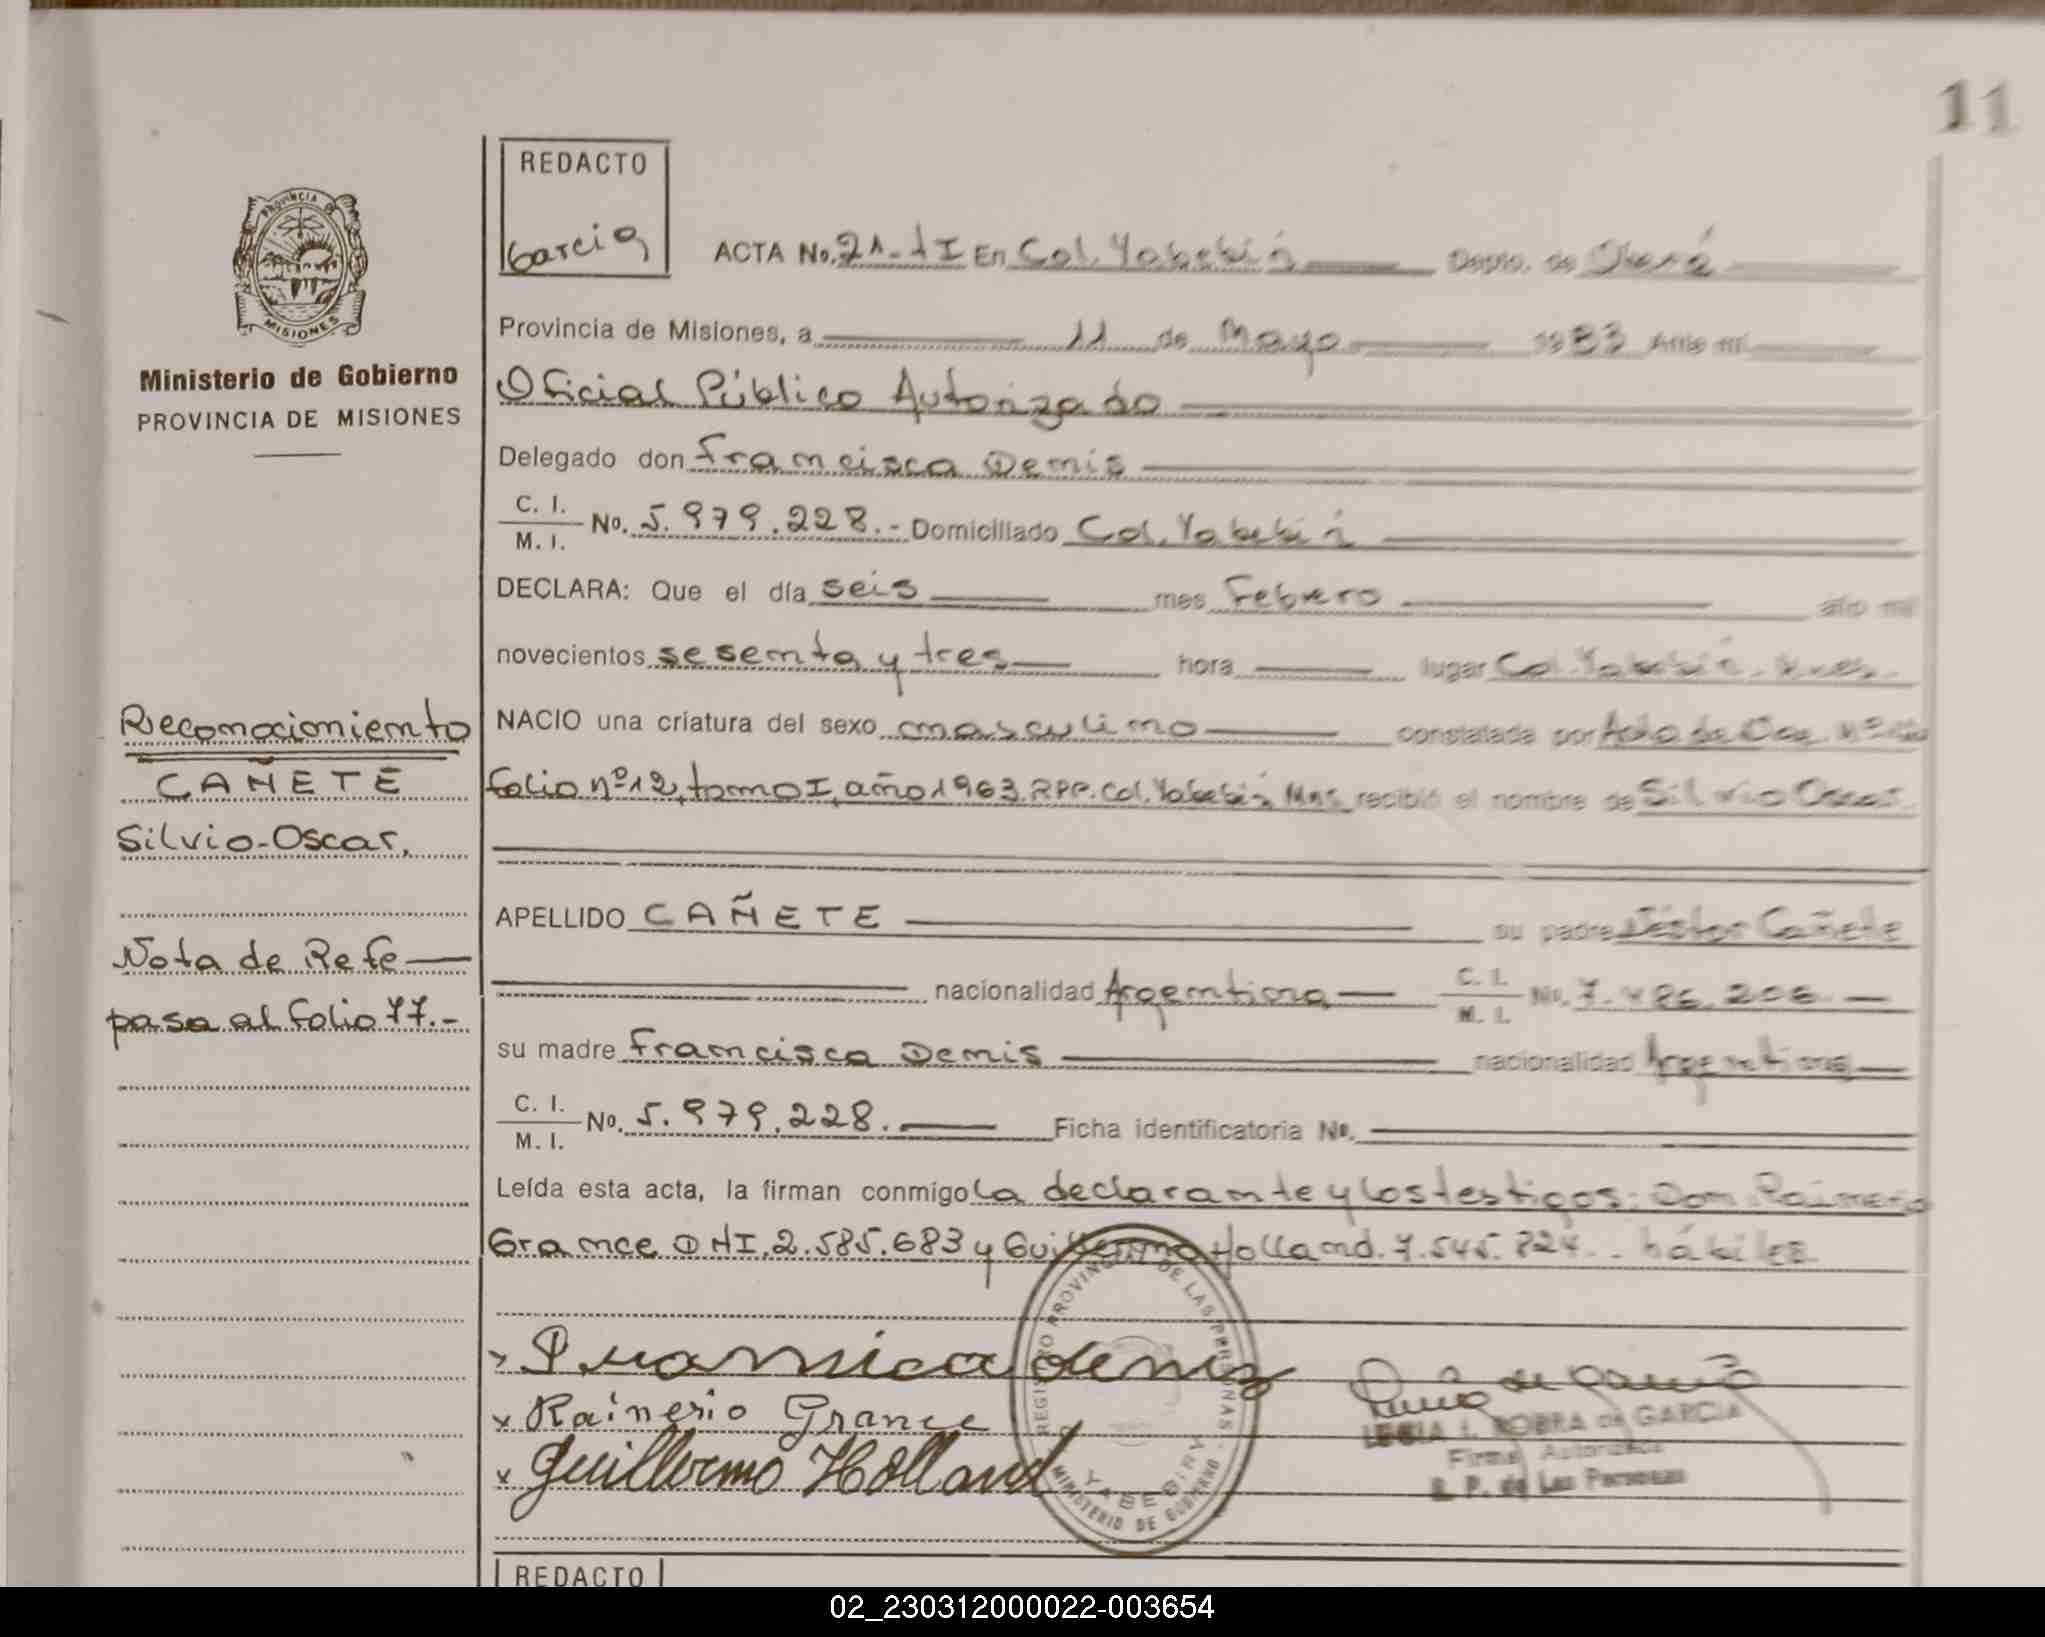 11
REDACTO
Garcia
ACTA No. 21-tI En Col. Yabebiri Depto. de Oberá
Provincia de Misiones, a 11 de Mayo 1983 Ante mi
Ministerio de Gobierno
PROVINCIA DE MISIONES
Oficial Público Autorizado
Delegado don Francisca Denis
C. I.
M. I. No. 5.979.228.- Domiciliado Col. Yabebiri
DECLARA: Que el día seis mes Febrero año mil
novecientos sesenta y tres hora lugar Col. Yabebiri.
NACIO una criatura del sexo masculino constatada por
folio nº 12, tomo I, año 1963. RPP. Col. Yabebiri Mns recibió el nombre de Silvio Oscar.
Reconocimiento
CAÑETE
Silvio-Oscar.
Nota de Refe
pasa al folio 77.-
APELLIDO CAÑETE su padre Néstor Cañete
nacionalidad Argentina C. I.
M. I. No. 7.486.206.
su madre Francisca Denis nacionalidad Argentina
C. I.
M. I. No. 5.979.228. Ficha identificatoria No.
Leída esta acta, la firman conmigo la declarante y los testigos: Don Rainerio
Grance DNI. 2.585.683 y Guillermo Holland. 7.545.824.. hábiles
Francica denis
Rainerio Grance
Guillermo Holland
REGISTRO PROVINCIAL DE LAS PERSONAS
YABEBIRY
MINISTERIO DE GOBIERNO
de Garcia
ROBRA de GARCIA
Firma Autorizada
R. P. de Las Personas
REDACTO
02_230312000022-003654